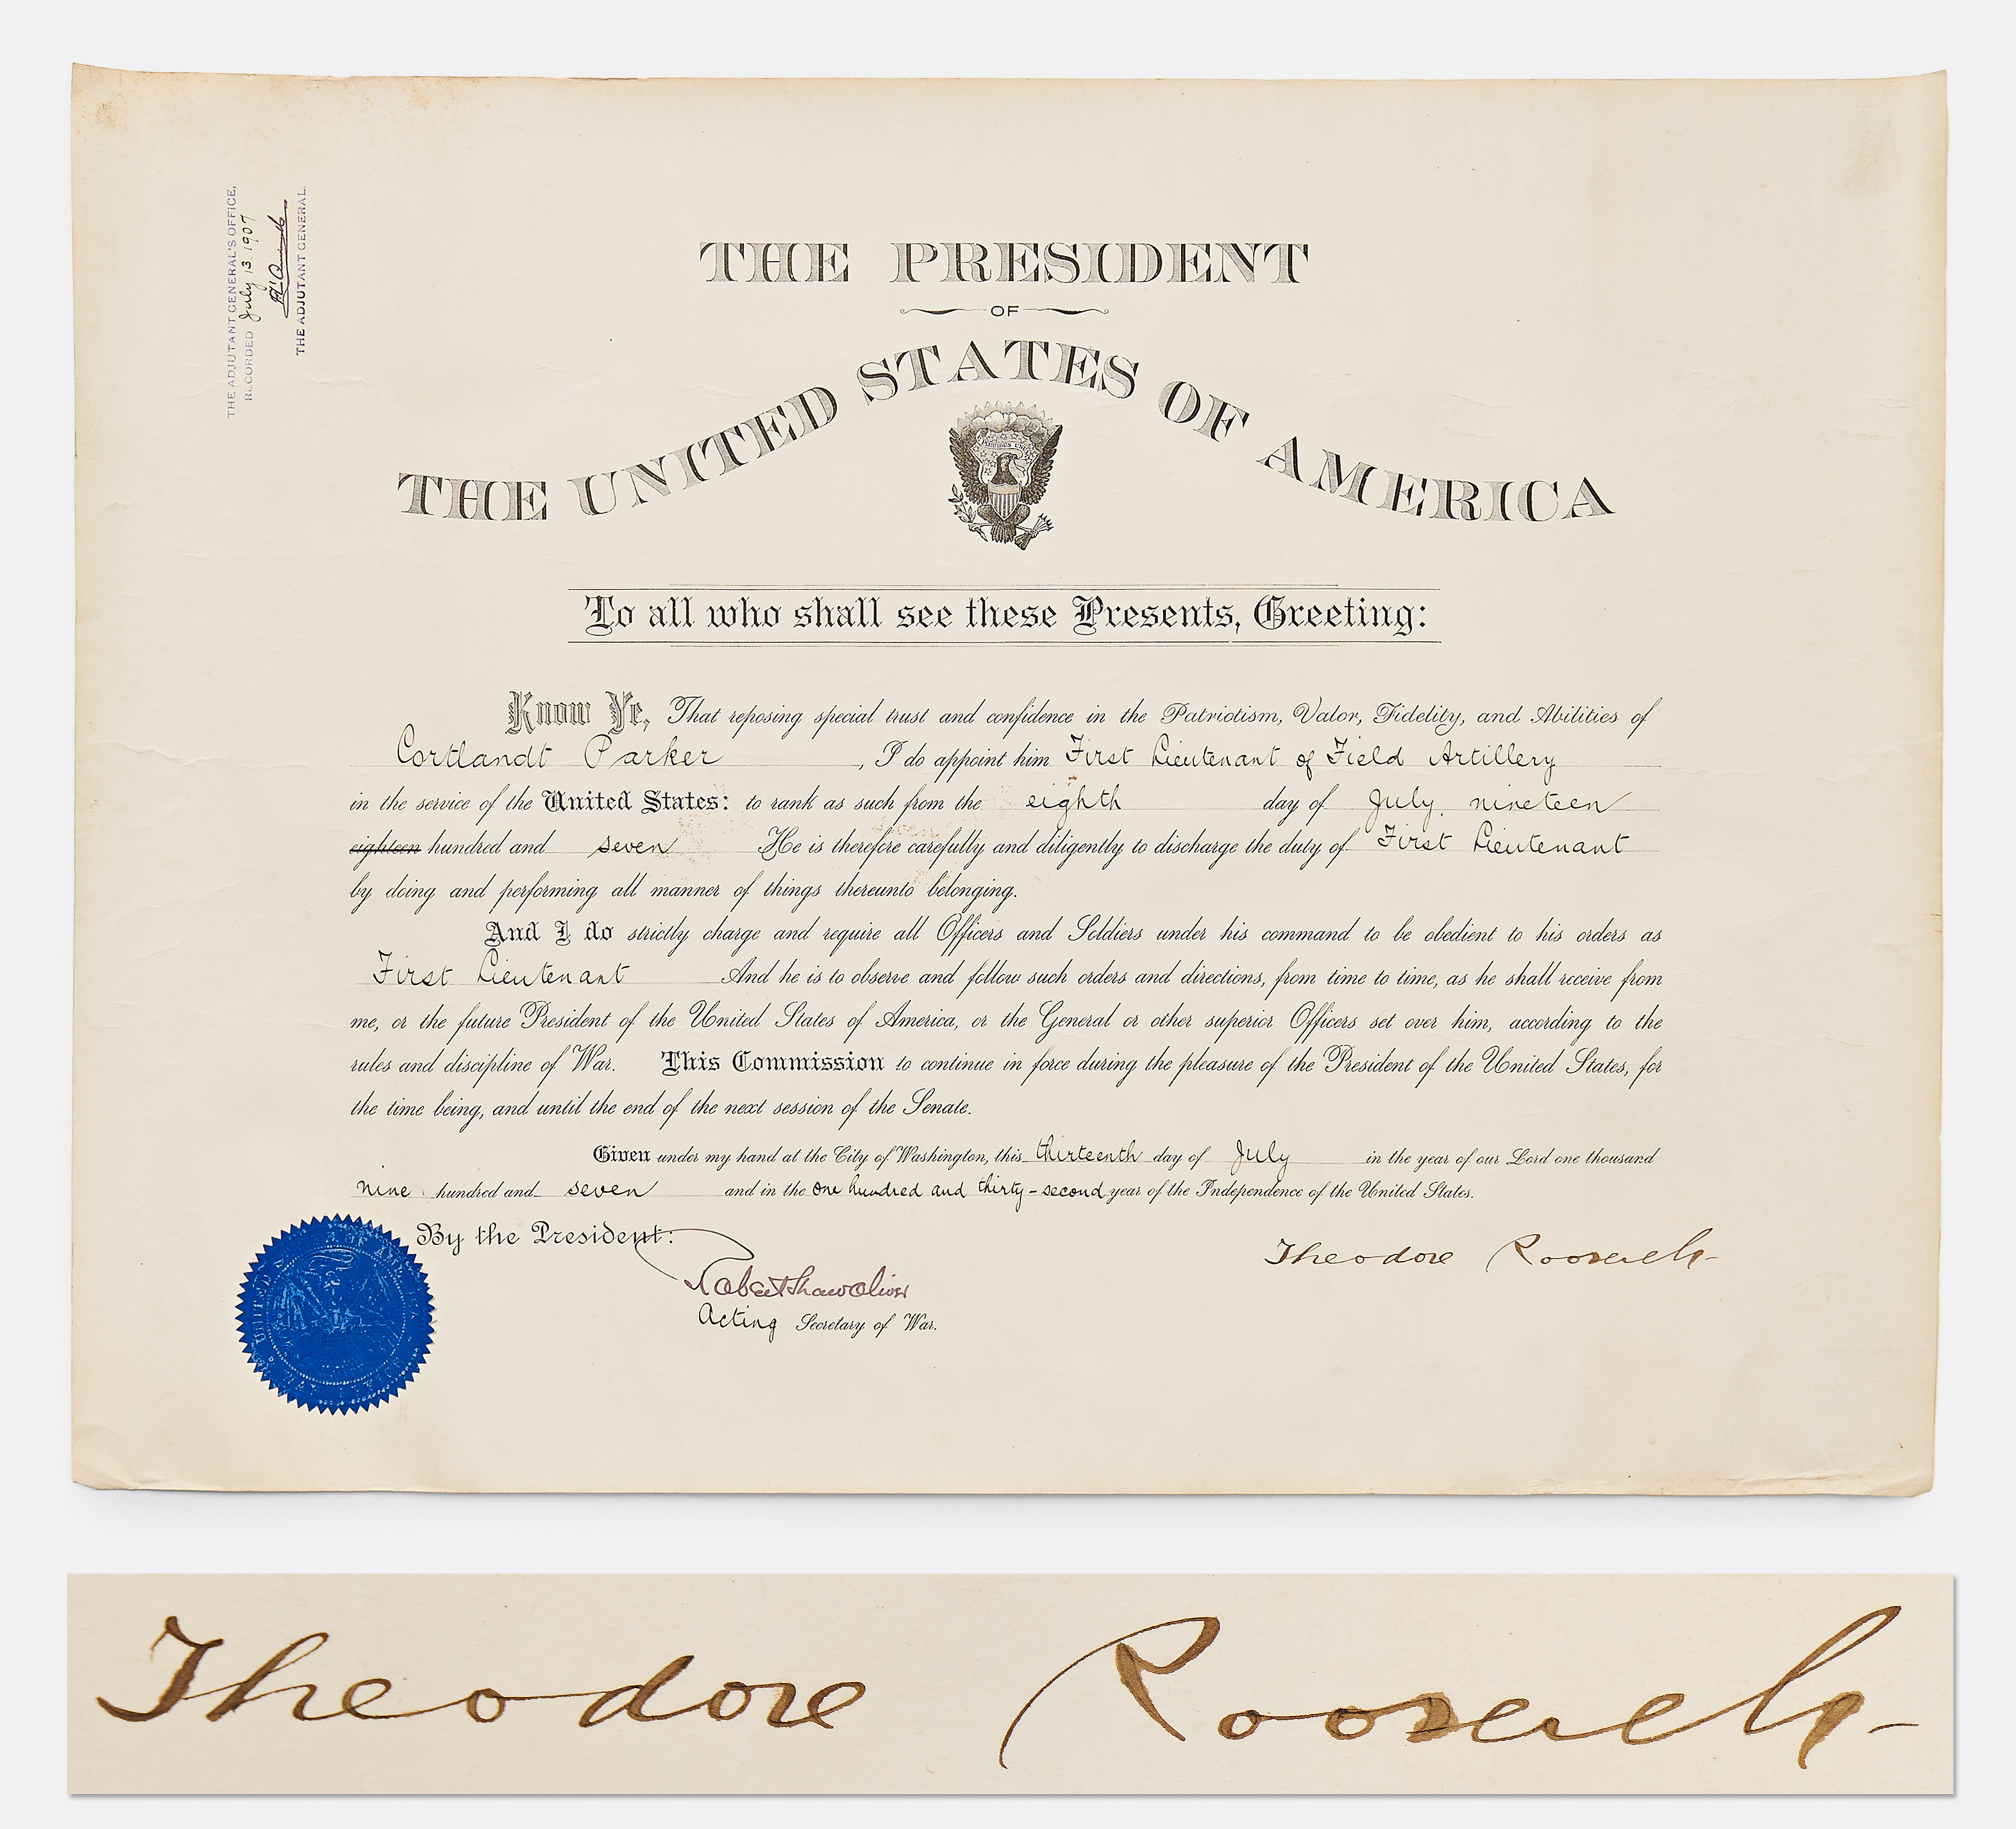 THE ADJUTANT GENERAL'S OFFICE,
RECORDED July 13 1907
THE ADJUTANT GENERAL.
THE PRESIDENT
OF
THE UNITED STATES OF AMERICA
To all who shall see these Presents, Greeting:
Know Ye, That reposing special trust and confidence in the Patriotism, Valor, Fidelity, and Abilities of
Cortlandt Parker, I do appoint him First Lieutenant of Field Artillery
in the service of the United States: to rank as such from the eighth day of July nineteen
eighteen hundred and seven He is therefore carefully and diligently to discharge the duty of First Lieutenant
by doing and performing all manner of things thereunto belonging.
And I do strictly charge and require all Officers and Soldiers under his command to be obedient to his orders as
First Lieutenant And he is to observe and follow such orders and directions, from time to time, as he shall receive from
me, or the future President of the United States of America, or the General or other superior Officers set over him, according to the
rules and discipline of War. This Commission to continue in force during the pleasure of the President of the United States, for
the time being, and until the end of the next session of the Senate.
Given under my hand at the City of Washington, this thirteenth day of July in the year of our Lord one thousand
nine hundred and seven and in the one hundred and thirty-second year of the Independence of the United States.
By the President:
Theodore Roosevelt
Robert Shaw Oliver
Acting Secretary of War.
Theodore Roosevelt